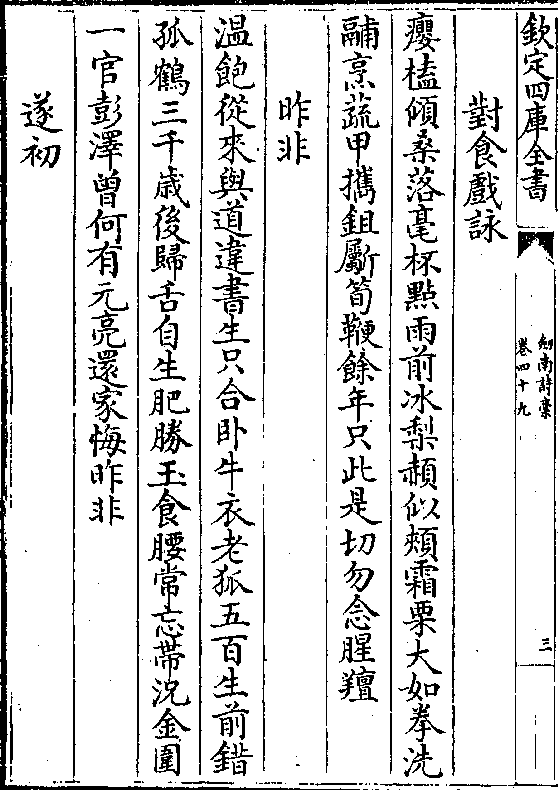 欽定四庫全書
劒南詩藁
卷四十九
三
對食戲詠
癭榼傾桑落毫杯點雨前冰梨赬似頰霜栗大如拳洗
鬴烹蔬甲攜鉏斸筍鞭餘年只此是切勿念腥羶
昨非
溫飽從來與道違書生只合卧牛衣老狐五百生前錯
孤鶴三千歳後歸舌自生肥勝玉食腰常忘帶況金圍
一官彭澤曾何有元亮還家悔昨非
遂初